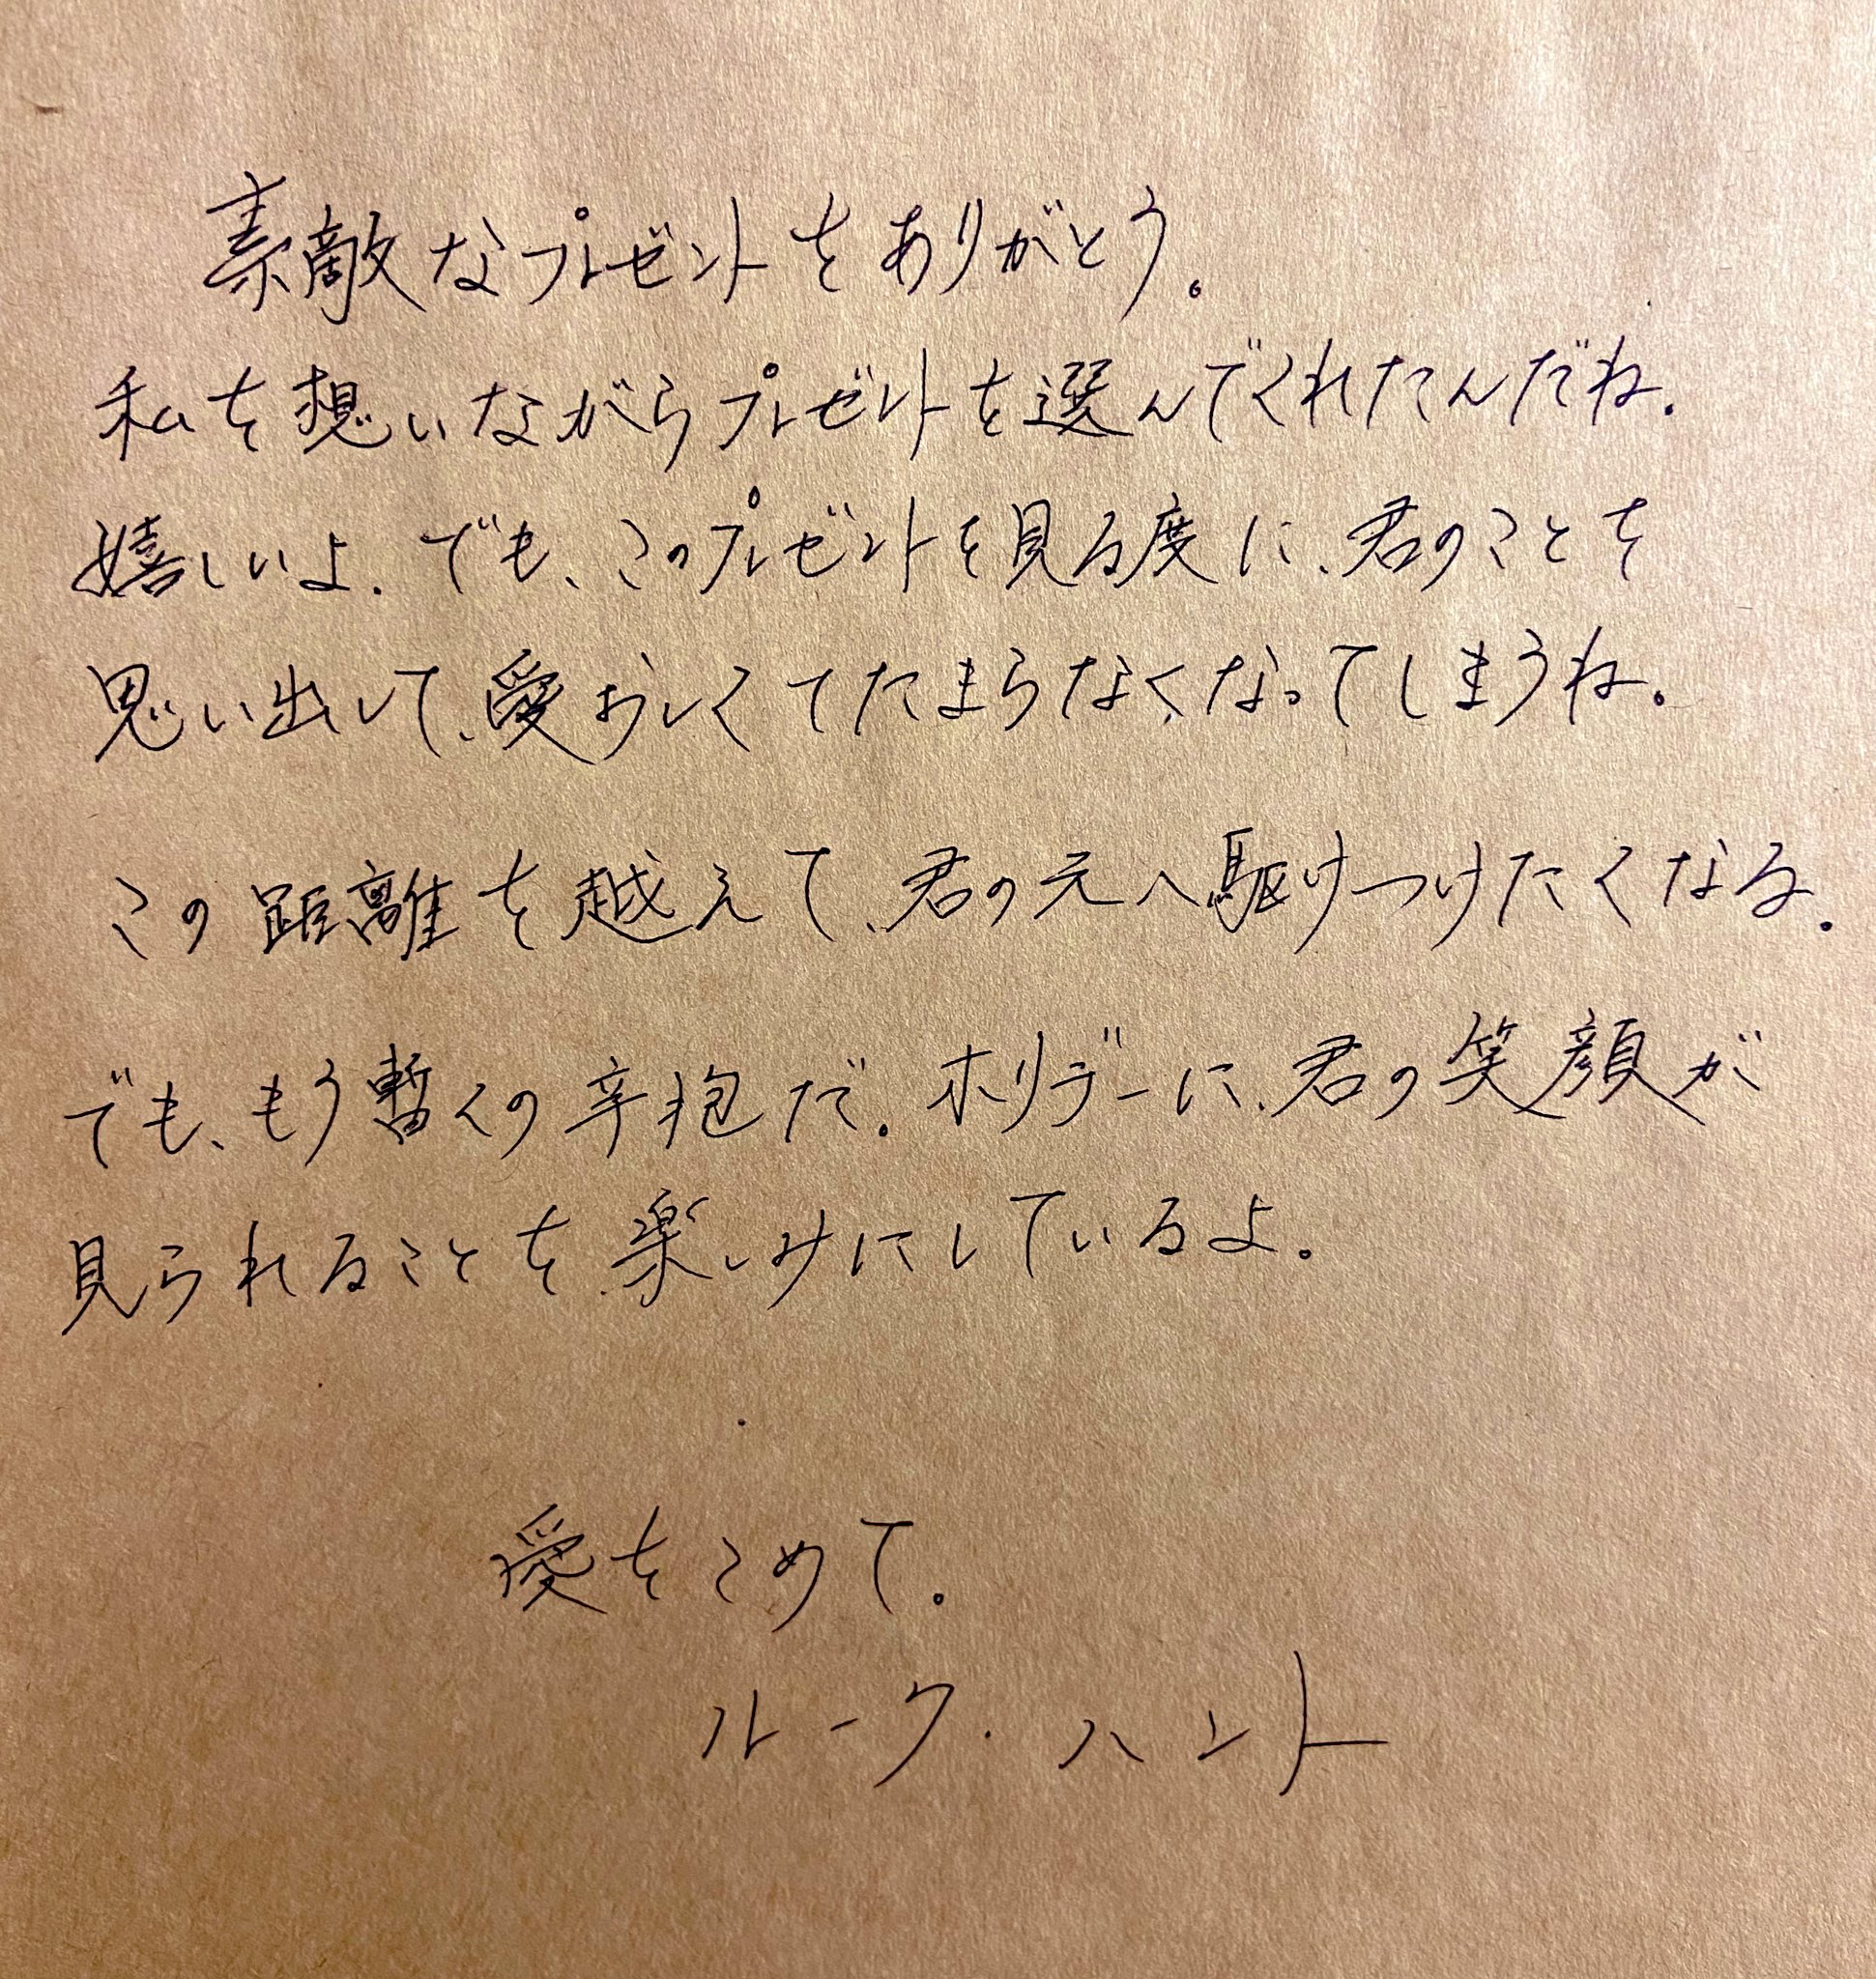 素敵なプレゼントをありがとう。
私を想いながらプレゼントを選んでくれたんだね.
嬉しいよ.でも、このプレゼントを見る度に、君のことを
思い出して、愛おしくてたまらなくなってしまうね。
この距離を越えて、君の元へ駆けつけたくなる.
でも、もう暫くの辛抱だ.ホリデーに、君の笑顔が
見られることを楽しみにしているよ。
愛をこめて。
ルーク・ハント